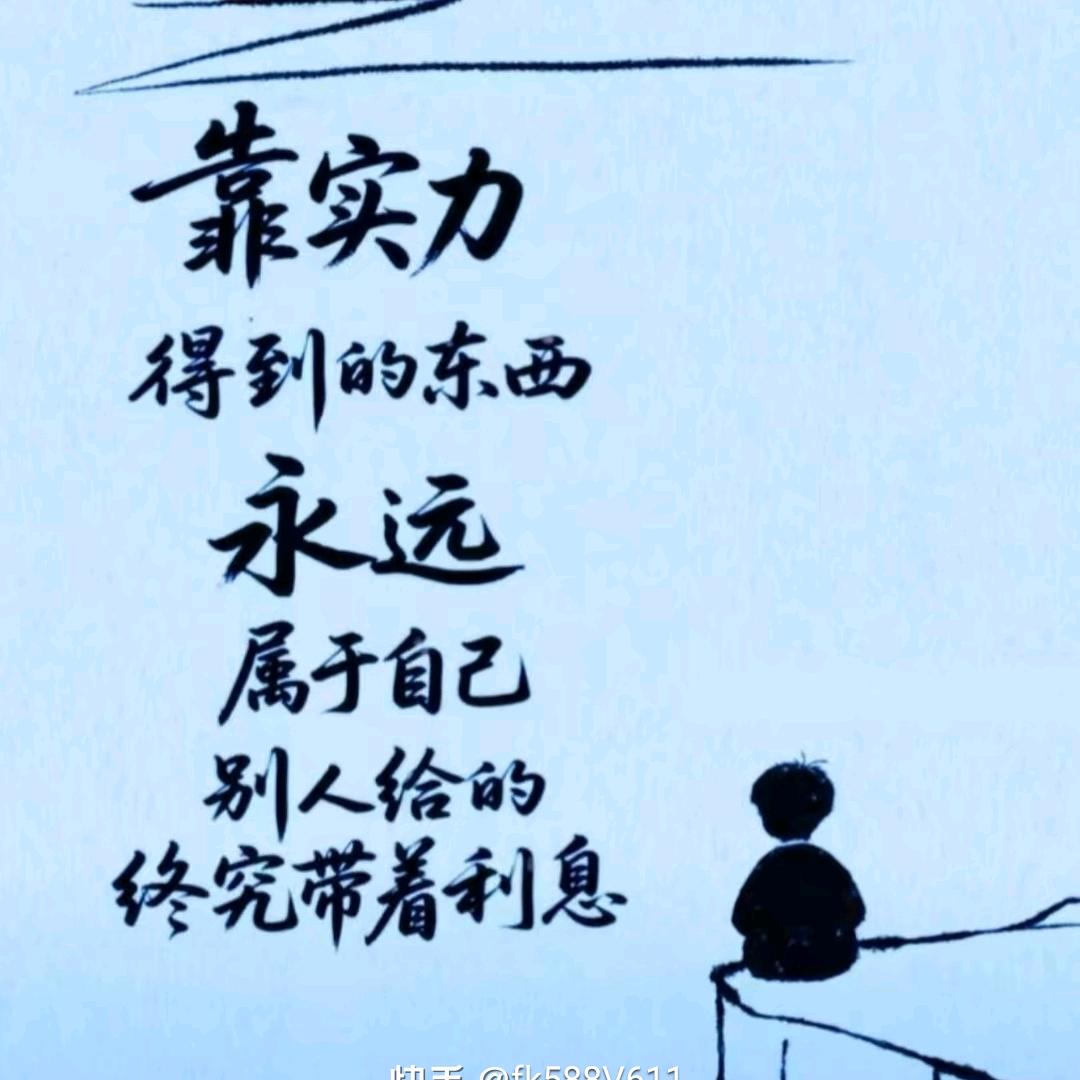 靠实力
得到的东西
永远
属于自己
别人给的
终究带着利息
快手 @fk588V611